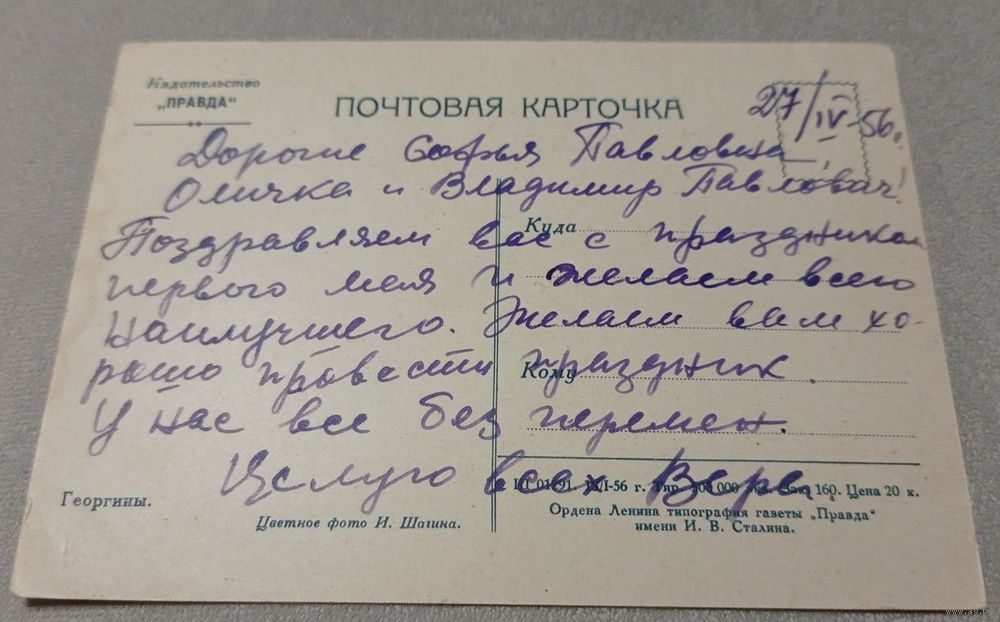 Издательство
„ПРАВДА“
ПОЧТОВАЯ КАРТОЧКА
27/IV-56 г.
Дорогие Софья Павловна,
Оличка и Владимир Павлович!
Поздравляем вас с праздником
первого мая и желаем всего
наилучшего. Желаем вам хо-
рошо провести праздник.
У нас все без перемен.
Целую всех Вера
Куда
Кому
Георгины.
Цветное фото И. Шагина.
56 г. 000 160. Цена 20 к.
Ордена Ленина типография газеты „Правда“
имени И. В. Сталина.